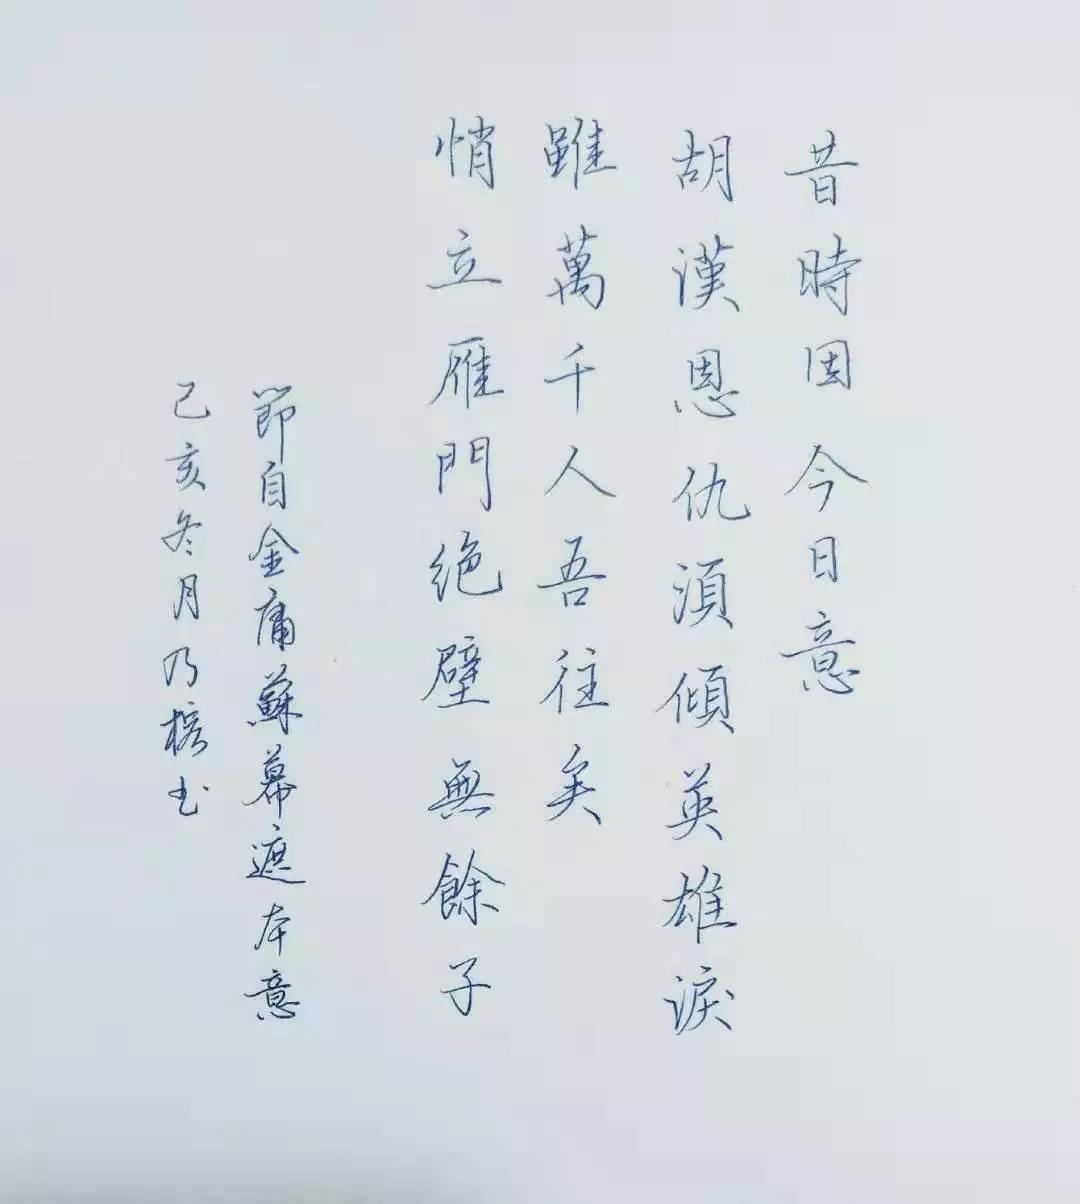 昔時因今日意
胡漢恩仇須傾英雄淚
雖萬千人吾往矣
悄立雁門絶壁無餘子
節自金庸蘇幕遮本意
己亥冬月乃榕书